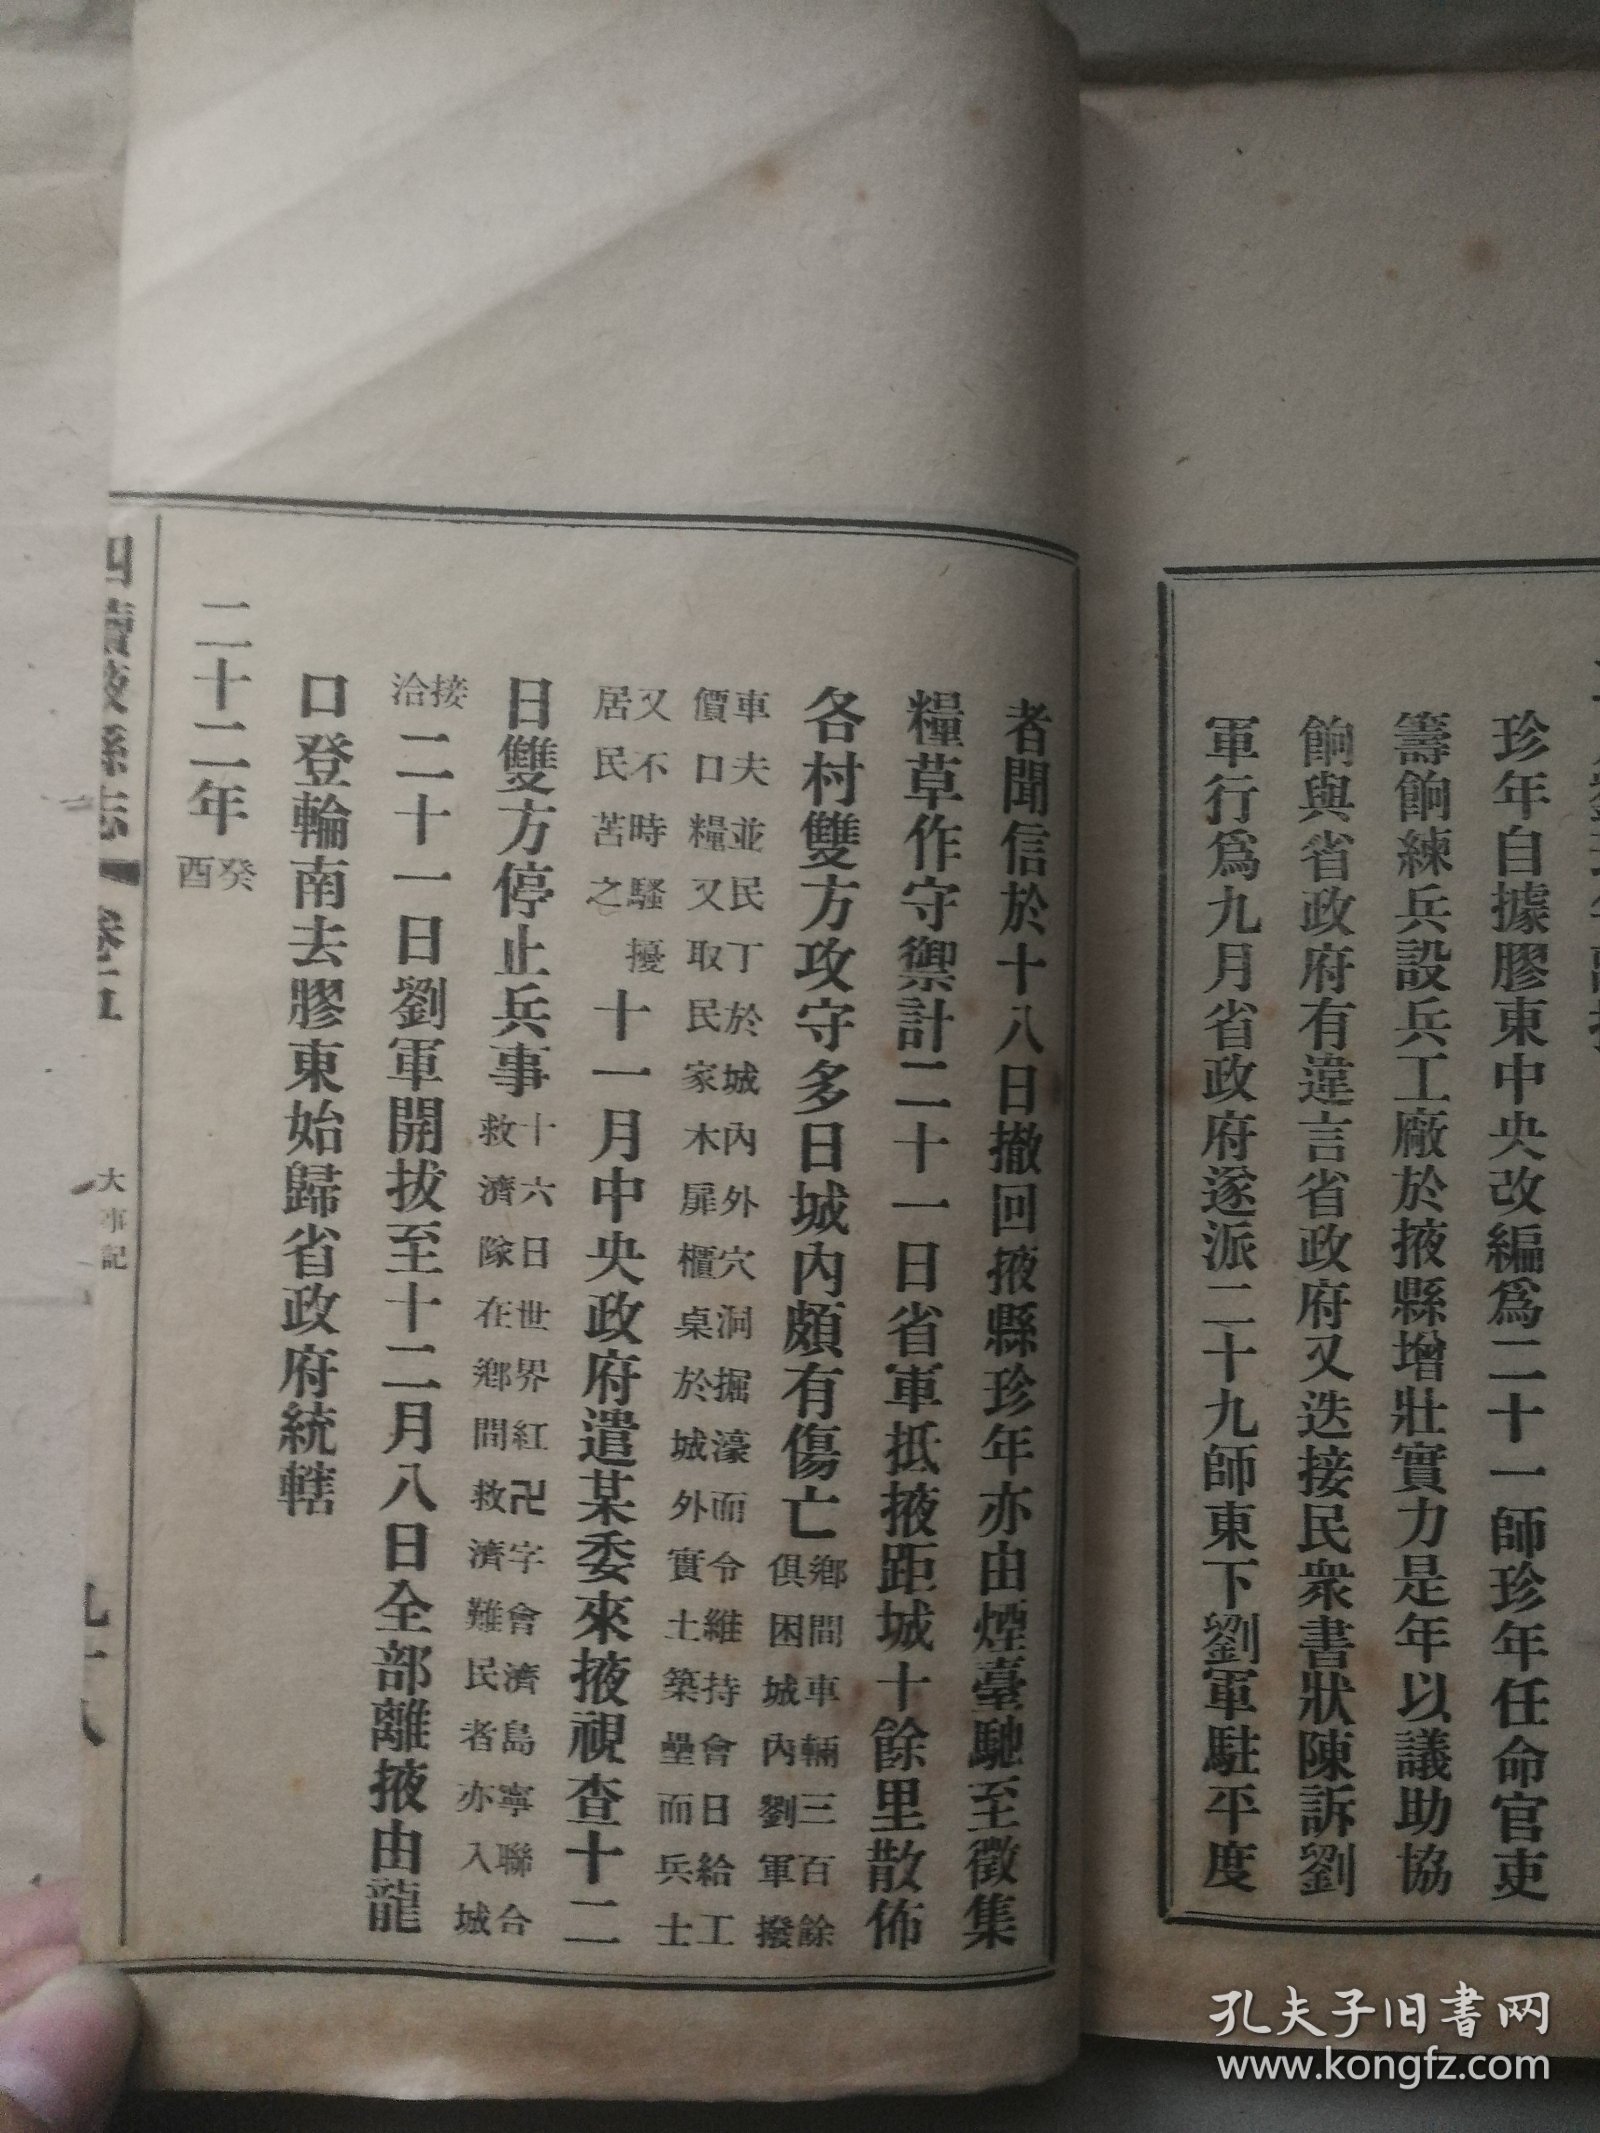 珍年自據膠東中央改編爲二十一師珍年任命官吏
籌餉練兵設兵工廠於掖縣增壯實力是年以議助協
餉與省政府有違言省政府又迭接民衆書狀陳訴劉
軍行爲九月省政府遂派二十九師東下劉軍駐平度
者聞信於十八日撤回掖縣珍年亦由煙臺馳至徵集
糧草作守禦計二十一日省軍抵掖距城十餘里散佈
各村雙方攻守多日城內頗有傷亡鄉間車輛三百餘俱困城內劉軍撥
車夫並民丁於城內外穴洞掘濠而令維持會日給工價口糧又取民家木扉櫃桌於城外實土築壘而兵士
又不時騷擾居民苦之十一月中央政府遣某委來掖視查十二
日雙方停止兵事十六日世界紅卍字會濟島寧聯合救濟隊在鄉間救濟難民者亦入城
接洽二十一日劉軍開拔至十二月八日全部離掖由龍
口登輪南去膠東始歸省政府統轄
二十二年癸酉
四續掖縣志 卷五 大事記 九十八
孔夫子旧书网
www.kongfz.com